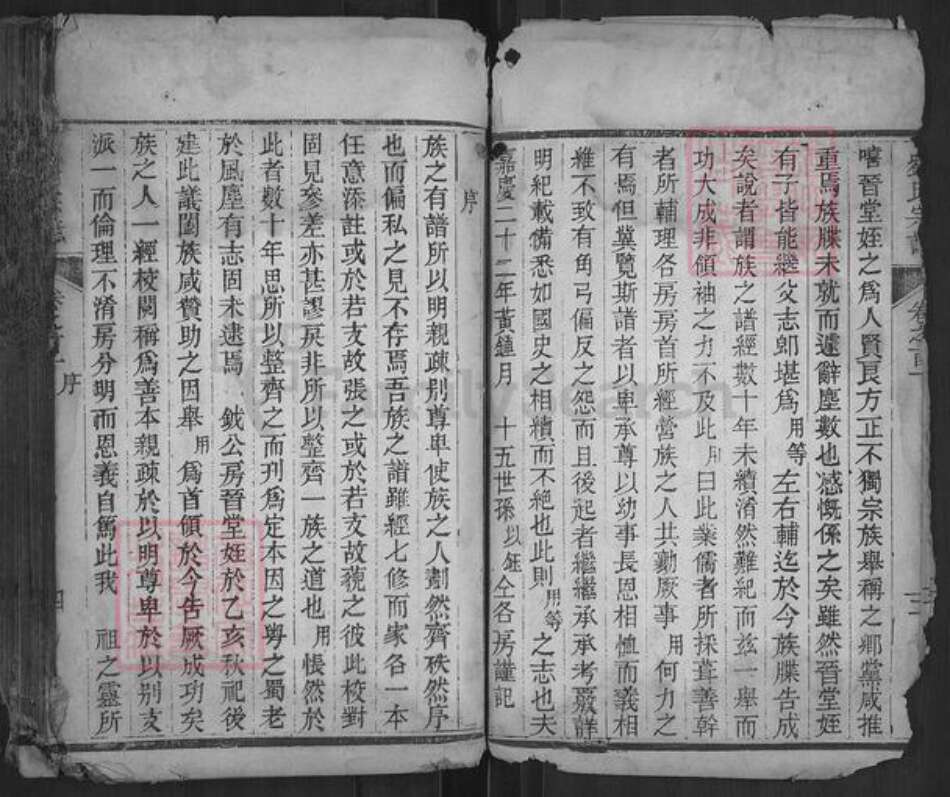 嘻晉堂姪之為人賢良方正不獨宗族舉稱之鄉黨咸推
重焉族牒未就而遽辭塵數也感慨係之矣雖然晉堂姪
有子皆能繼父志卽堪為用等左右輔迄於今族牒告成
矣說者謂族之譜經數十年未續淆然難紀而兹一舉而
功大成非領袖之力不及此用曰此業儒者所採葺善幹
者所輔理各房房首所經營族之人共勷厥事用何力之
有焉但冀覽斯譜者以卑承尊以幼事長恩相恤而義相
維不致有角弓偏反之怨而且後起者繼繼承承考覈詳
明紀載備悉如國史之相續而不絶也此則用等之志也夫
嘉慶二十二年黃鐘月 十五世孫以鈺仝各房謹記
卷之首
序
族之有譜所以明親疎别尊卑使族之人劃然齊秩然序
也而偏私之見不存焉吾族之譜雖經七修而家各一本
任意添註或於若支故張之或於若支故藐之彼此校對
固見參差亦甚謬戾非所以整齊一族之道也用悵然於
此者數十年思所以整齊之而刋為定本因之勞之蜀老
於風塵有志固未逮焉 鉞公房晉堂姪於乙亥秋祀後
建此議闔族咸贊助之因舉用為首領於今告厥成功矣
族之人一經校閱稱為善本親疎於以明尊卑於以别支
派一而倫理不淆房分明而恩義自篤此我 祖之靈所
序